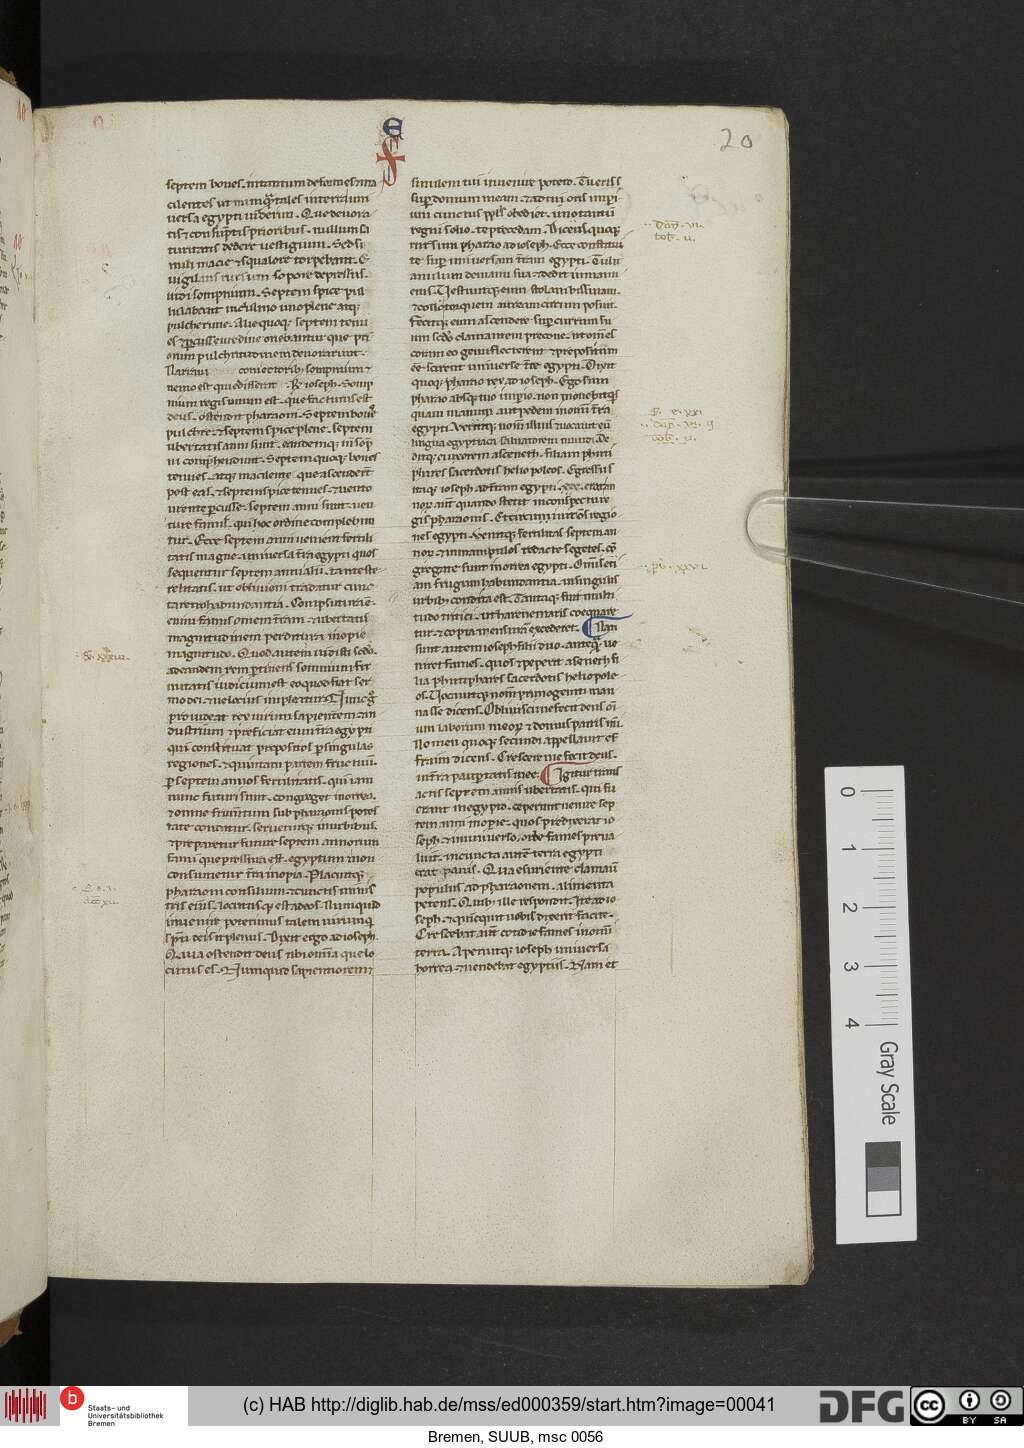 20
septem boues. intantum deformes ⁊ ma
cilentes ut nunquā tales in terra
uersa egypti uiderim. Que deuora
tis ⁊ consūptis prioribus. nullum sa
turitatis dedere uestigium. Sed si
mili macie ⁊ squalore torpebant. E
uigilans rursum sopore depressus.
uidi sompnium. Septem spice pul
lulabant in culmo uno plene atq;
pulcherime. Alie quoq; septem tenu
es ⁊ percusse uredine oriebantur que pri
orum pulchritudinem deuorarunt.
Narraui coniectorib; sompnium ⁊
nemo est qui edisserat. R̄ ioseph. Somp
nium regis unum est. que facturus est
deus. ostendit pharaoni. Septem boues
pulchre. ⁊ septem spice plene. septem
ubertatis anni sunt. eandemq; uim somp
nii comprehendunt. Septem quoq; boues
tenues. atq; macilente que ascenderūt
post eas. ⁊ septem spice tenues. ⁊ uento
urente percusse. septem anni sunt. uen
ture famis. qui hoc ordine complebun
tur. Ecce septem anni uenient fertili
tatis magne. in uniuersa terra egypti quos
sequentur septem anni alii. tante ste
relitatis. ut obliuioni tradatur cunc
ta retro habundantia. Consumptura ē
enim famis omem terram. ⁊ ubertatis
magnitudinem perditura inopie
magnitudo. Quod autem uidisti sc̄do.
ad eandem rem pertinens somnium fir
mitatis iudicium est eo quod fiat ser
mo dei. ⁊ uelocius impleatur. Nunc g̊
prouideat rex uirum sapientem ⁊ in
dustrium. ⁊ preficiat eum terra egypti
qui constituat prepositos per singulas
regiones. ⁊ quintam partem fructuū.
per septem annos fertilitatis. qui iam
nunc futuri sunt. congreget in orrea.
⁊ omne frumentum sub pharaonis potes
tate condatur. serueturq; in urbibus.
⁊ preparetur future septem annorum
fami que pressura est. egyptum ⁊ non
consumetur terra inopia. Placuitq;
pharaoni consilium. ⁊ cunctis minis
tris eius. locutusq; est ad eos. Num quid
inuenire poterimus talem uirum q̄
spiritu dei sit plenus. Dixit ergo ad ioseph.
Quia ostendit deus tibi omnia que lo
cutus es. Nunquid sapientiorem ⁊
similem tui inuenire potero. Tu eris s
super domum meam. ⁊ ad tui oris imperi
um cunctus populus obediet. uno tantū
regni solio. te precedam. Dicens quoq;
rursum pharao ad ioseph. Ecce constitui
te super uniuersam terram egypti. Tulit
anulum de manu sua ⁊ dedit in manu
eius. Uestiuitq; eum stolam bissinam.
⁊ collo torquem auream circum posuit.
Fecitq; eum ascendere super currum su
um sc̄dm clamantem precone. ut omnes
coram eo genu flecterent ⁊ prepositum
eē scirent uniuerse terre egypti. Dixit
quoq; pharao rex. ad ioseph. Ego sum
pharao absq; tuo imperio. non mouebit q̄s
quam manum aut pedem in omni terra
egypti. Vertitq; nomen illius ⁊ uocauit eū
lingua egyptiaca saluatorem mundi. De
ditq; ei uxorem aseneth. filiam phuti
phares sacerdotis helio poleos. Egressus
itaq; ioseph ad terram egypti. xxx. erat an
norum aut̄ quando stetit in conspectu re
gis pharaonis. Et circuiuit omnes regio
nes egypti. Venitq; fertilitas septem an
norum. ⁊ in manipulos redacte segetes. con
gregate sunt in orrea egypti. Omnis eti
am frugum habundantia. in singulis
urbib; condita est. Tantaq; fuit multi
tudo tritici. ut harene maris coequare
tur. ⁊ copia mensuram excederet. Nati
sunt autem ioseph filii duo. anteq̄ ue
niret fames. quos ⁊ peperit aseneth fi
lia phutiphares sacerdotis helio pole
os. Uocauitq; nomen primogeniti man
nasse dicens. Obliuisci me fecit deus om̄
um laborum meorum. ⁊ domus patris mei.
Nomen quoq; secundi appellauit ef
fraim dicens. Crescere me fecit deus.
in terra paupertatis mee. Igitur trans
actis septem annis ubertatis. qui fu
erant in egypto. ceperunt uenire sep
tem anni inopie. quos predixerat io
seph. ⁊ in uniuerso. orbe fames preua
luit. in cuncta autē terra egypti
erat panis. Qua esuriente clamauit
populus ad pharaonem. alimenta
petens. Quib; ille respondit. Ite ad io
seph. ⁊ quicquit uobis dixerit facite.
Crescebat aut̄ cotidie fames in omni
terra. Aperuitq; ioseph uniuersa
horrea. ⁊ uendebat egyptiis. Nam et
0
1
2
3
4
Gray Scale
b
Staats- und
Universitätsbibliothek
Bremen
(c) HAB http://diglib.hab.de/mss/ed000359/start.htm?image=00041
DFG
cc
BY SA
Bremen, SUUB, msc 0056